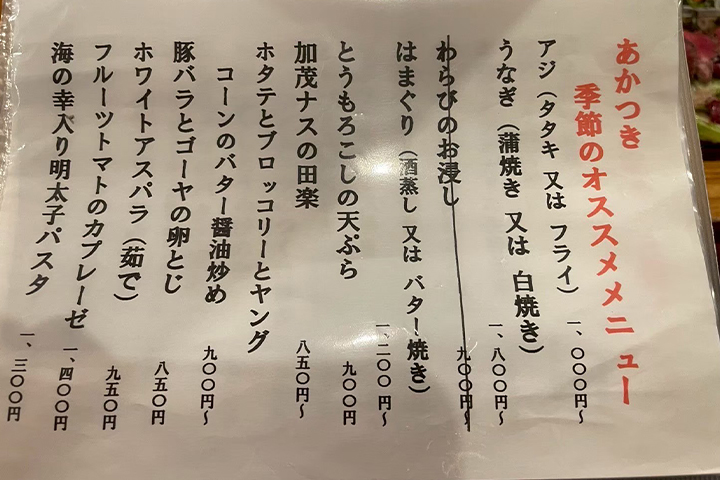 あかつき
季節のオススメメニュー
アジ（タタキ 又は フライ）
一、〇〇〇円～
うなぎ（蒲焼き 又は 白焼き）
一、八〇〇円～
わらびのお浸し
九〇〇円～
はまぐり（酒蒸し 又は バター焼き）
一、二〇〇円～
とうもろこしの天ぷら
九〇〇円
加茂ナスの田楽
八五〇円～
ホタテとブロッコリーとヤング
コーンのバター醤油炒め
九〇〇円～
豚バラとゴーヤの卵とじ
八五〇円
ホワイトアスパラ（茹で）
九五〇円
フルーツトマトのカプレーゼ
一、四〇〇円
海の幸入り明太子パスタ
一、三〇〇円